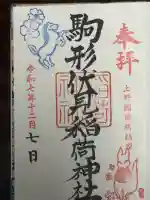 奉拝
駒形伏見稲荷神社
令和七年十二月
七日